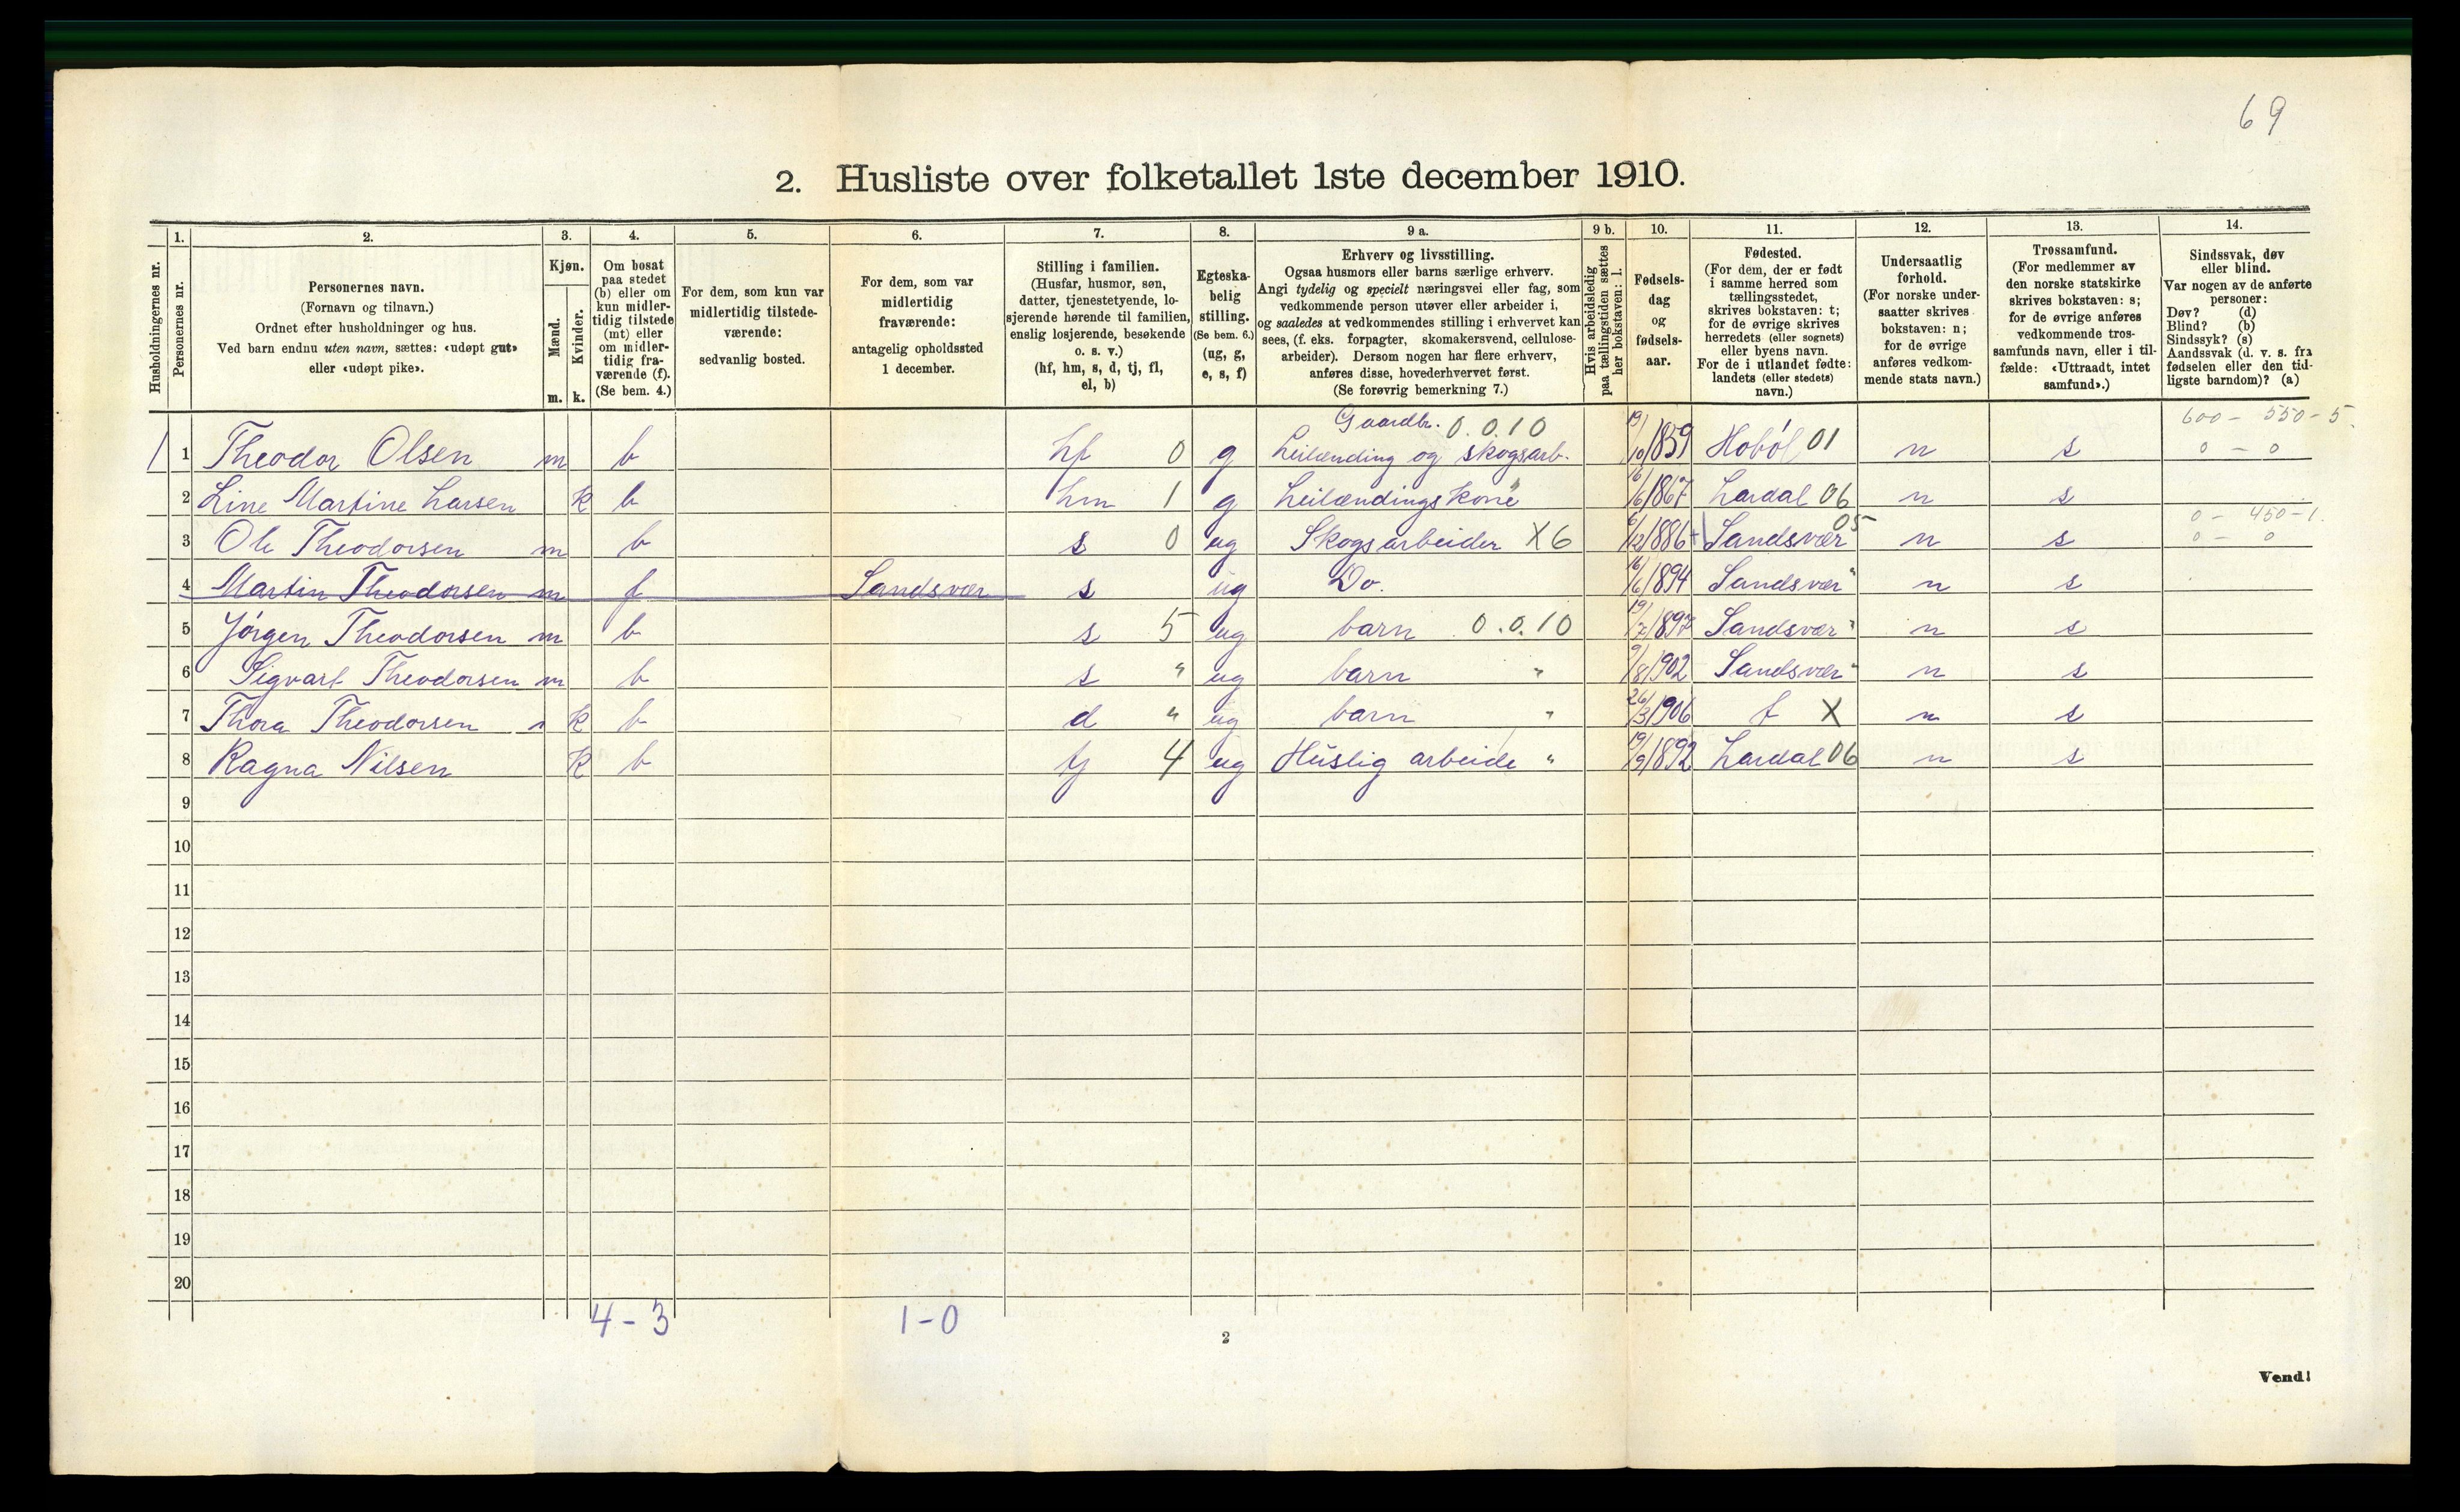 69
2. Husliste over folketallet 1ste december 1910.
Husholdningernes nr.
1.
Personernes nr.
2.
Personernes navn.
(Fornavn og tilnavn.)
Ordnet efter husholdninger og hus.
Ved barn endnu uten navn, sættes: «udøpt gut»
eller «udøpt pike».
3.
Kjøn.
Mænd.
m.
Kvinder.
k.
4.
Om bosat
paa stedet
(b) eller om
kun midler-
tidig tilstede
(mt) eller
om midler-
tidig fra-
værende (f).
(Se bem. 4.)
5.
For dem, som kun var
midlertidig tilstede-
værende:
sedvanlig bosted.
6.
For dem, som var
midlertidig
fraværende:
antagelig opholdssted
1 december.
7.
Stilling i familien.
(Husfar, husmor, søn,
datter, tjenestetyende, lo-
sjerende hørende til familien,
enslig losjerende, besøkende
o. s. v.)
(hf, hm, s, d, tj, fl,
el, b)
8.
Egteska-
belig
stilling.
(Se bem. 6.)
(ug, g,
e, s, f)
9 a.
Erhverv og livsstilling.
Ogsaa husmors eller barns særlige erhverv.
Angi tydelig og specielt næringsvei eller fag, som
vedkommende person utøver eller arbeider i,
og saaledes at vedkommendes stilling i erhvervet kan
sees, (f. eks. forpagter, skomakersvend, cellulose-
arbeider). Dersom nogen har flere erhverv,
anføres disse, hovederhvervet først.
(Se forøvrig bemerkning 7.)
9 b.
Hvis arbeidsledig
paa tællingstiden sættes
her bokstaven: l.
10.
Fødsels-
dag
og
fødsels-
aar.
11.
Fødested.
(For dem, der er født
i samme herred som
tællingsstedet,
skrives bokstaven: t;
for de øvrige skrives
herredets (eller sognets)
eller byens navn.
For de i utlandet fødte:
landets (eller stedets)
navn.)
12.
Undersaatlig
forhold.
(For norske under-
saatter skrives
bokstaven: n;
for de øvrige
anføres vedkom-
mende stats navn.)
13.
Trossamfund.
(For medlemmer av
den norske statskirke
skrives bokstaven: s;
for de øvrige anføres
vedkommende tros-
samfunds navn, eller i til-
fælde: «Uttraadt, intet
samfund».)
14.
Sindssvak, døv
eller blind.
Var nogen av de anførte
personer:
Døv? (d)
Blind? (b)
Sindssyk? (s)
Aandssvak (d. v. s. fra
fødselen eller den tid-
ligste barndom)? (a)
Gaardbr. 0.0.10 600 - 550 - 5
1 1 Theodor Olsen m b hf 0 g Leilænding og skogsarb. 19/10 1859 Hobøl 01 n s 0 - 0
2 Line Martine Larsen k b hm 1 g Leilændings kone " 16/6 1867 Lardal 06 n s
0 - 450 - 1.
3 Ole Theodorsen m b s 0 ug Skogsarbeider X6 6/12 1886 + Sandsvær 05 n s 0 - 0
4 Martin Theodorsen m f Sandsvær s ug Do. 16/6 1894 Sandsvær " n s
5 Jørgen Theodorsen m b s 5 ug barn 0.0.10 19/7 1897 Sandsvær " n s
6 Sigvart Theodorsen m b s " ug barn " 9/8 1902 Sandsvær " n s
7 Thora Theodorsen k b d " ug barn " 26/3 1906 t X n s
8 Ragna Nilsen k b tj 4 ug Huslig arbeide " 19/9 1892 Lardal 06 n s
9
10
11
12
13
14
15
16
17
18
19
20
4 - 3 1 - 0
2
Vend!